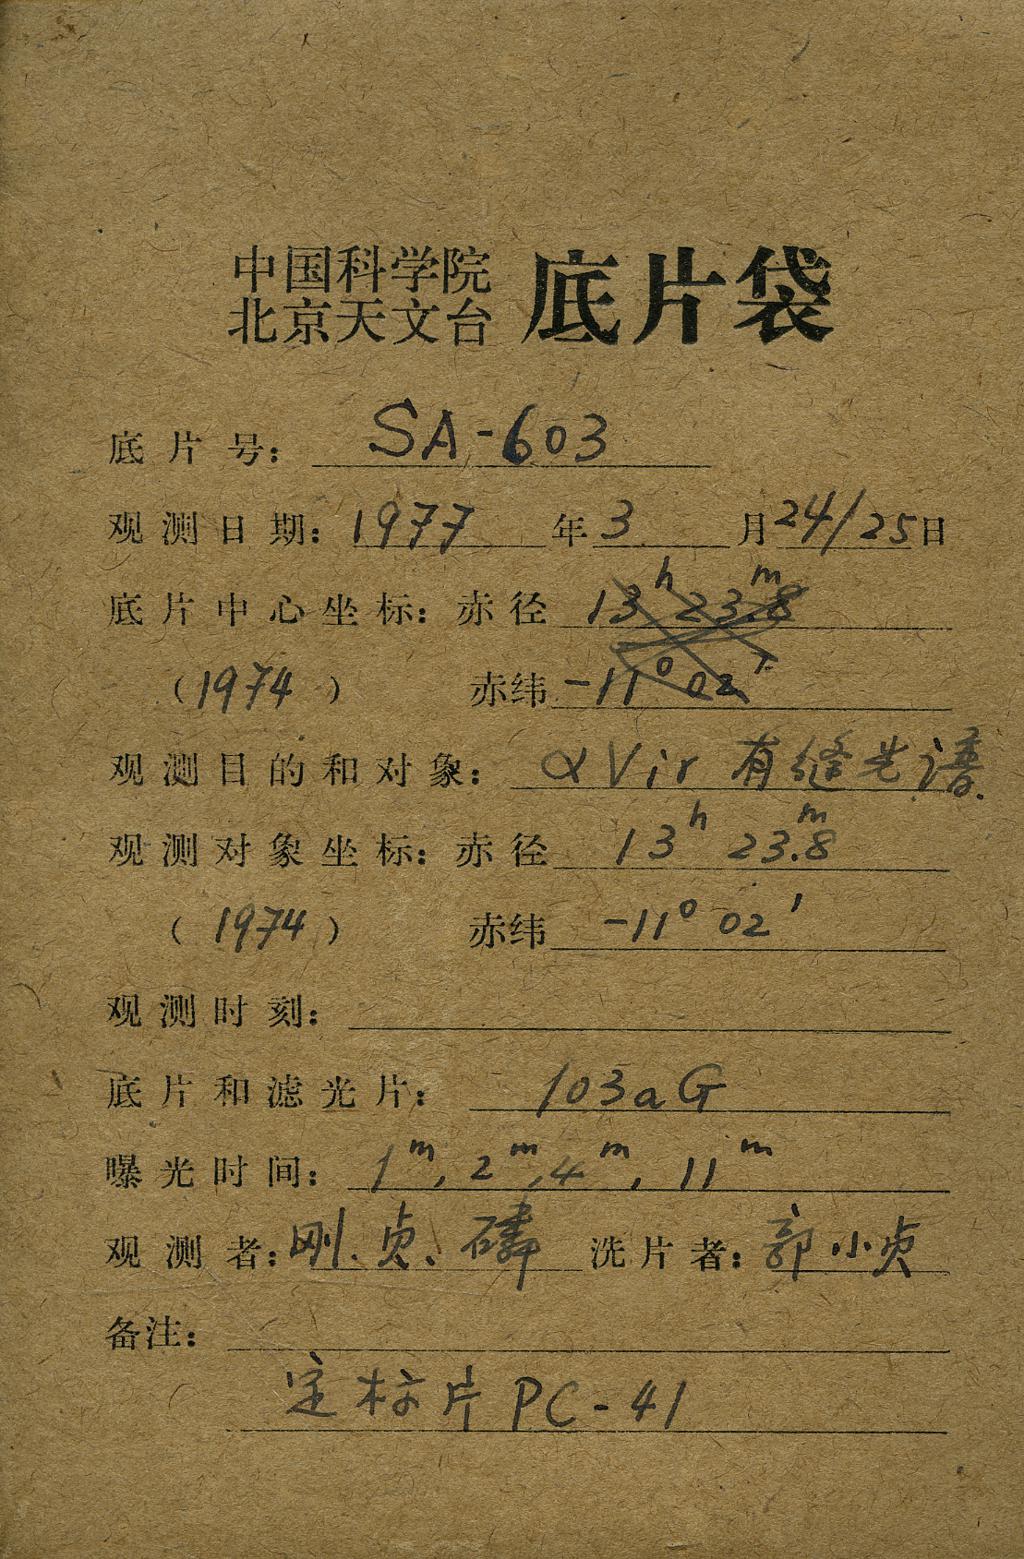 中国科学院
北京天文台 底片袋
底片号: SA-603
观测日期: 1977年3月24/25日
底片中心坐标: 赤径 13h 23m.8
(1974) 赤纬 -11° 02'
观测目的和对象: α Vir 有缝光谱.
观测对象坐标: 赤径 13h 23m.8
(1974) 赤纬 -11° 02'
观测时刻:
底片和滤光片: 103aG
曝光时间: 1m, 2m, 4m, 11m
观测者: 刚、贞、磷 洗片者: 郭小贞
备注:
定标片 PC-41